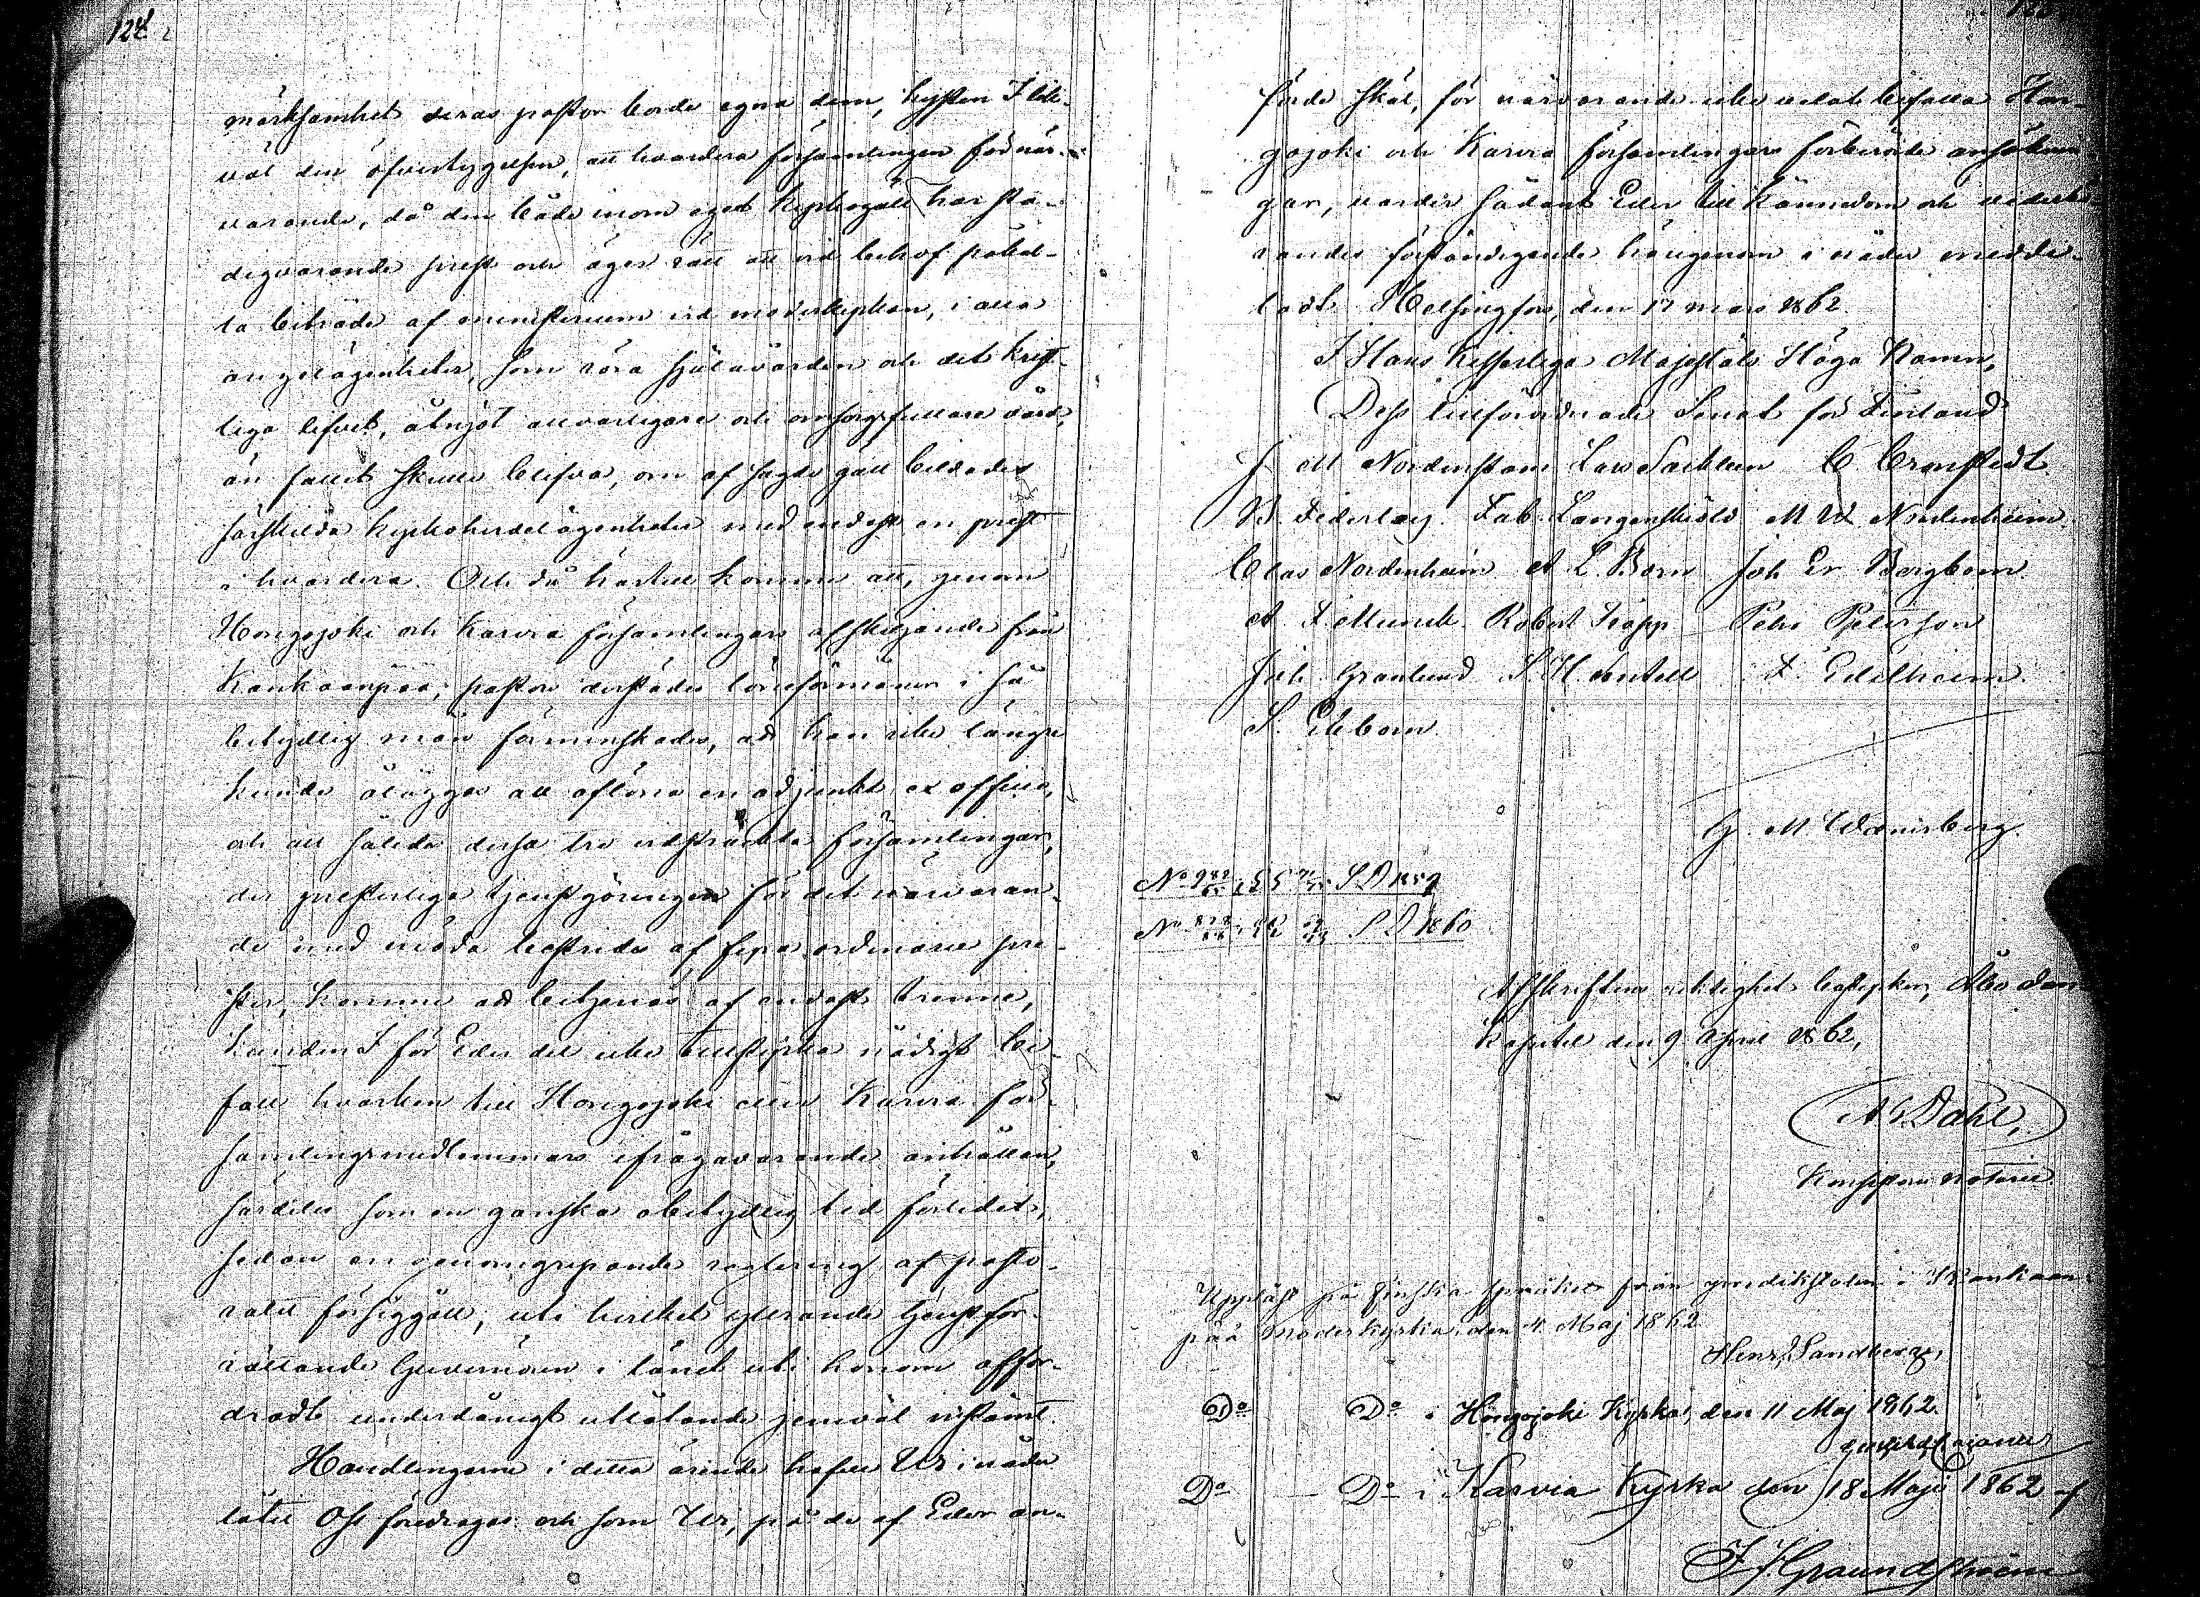 124
märksamhet deras pastor borde egna dem, hysten I lik-
väl den öfvertygelsen, att hvardera församlingen förnär-
varande, då den både inom eget kapellgäll har stä-
digvarande prest och äger rätt att vid behof påkal-
la biträde af ministerium vid moderkyrkan, i alla
angelägenheter, som röra själavården och det krist-
liga lifvet, åtnjöt allvarligare och omsorgsfullare vård,
än fallet skulle blifva, om af sagde gäll bildades
särskilda kyrkoherdelägenheter med endast en prest
i hvardera. Och då härtill komme att, genom
Hongojoki och Karvia församlingars afskiljande från
Kankaanpää, pastors derstädes löneförmåner i så
betydlig mån förminskades, att han icke längre
kunde åläggas att aflöna en adjunkt ex officio,
och att således dessa tre vidsträckta församlingar,
der presterliga tjenstgöringen för det närvaran-
de med möda bestrides af fyra ordinarie pre-
ster, komme att betjenas af endast trenne,
kunden I för Eder del icke tillstyrka nådigt bi-
fall hvarken till Hongojoki eller Karvia för-
samlingsmedlemmars ifrågavarande anhållan,
särdeles som en ganska obetydlig tid förlidit,
sedan en genomgripande reglering af pasto-
ratet försiggått; uti hvilket yttrande tjenstför-
rättande Guvernören i länet uti honom affor-
dradt underdånigst utlåtande jemväl instämt.
Handlingarne i detta ärende hafve Wi i nåder
låtit Oss föredragas och som Wi, på de af Eder an-
förde skäl, för närvarande icke velat bifalla Hon-
gojoki och Karvia församlingars förberörde ansöknin-
gar, varder sådant Eder till kännedom och vederbö-
randes förständigande härigenom i nåder medde-
ladt. Helsingfors, den 17 mars 1862.
I Hans Kejserliga Majestäts Höga Namn,
Dess tillförordnade Senat för Finland
J M Nordenstam Lars Sackleen C Cronstedt
B. Federley. Fab. Langenskiöld M W Nordenheim
Clas Nordenheim A L. Born Joh Er Bergbom
A F Munck. Robert Trapp Petr Peterson
Joh Granlund S. H Antell F. Edelheim
S. Elcborn
G. M. Wænerberg.
S D 1859
S D 1860
Afskriftens riktighet bestyrker, Åbo Dom
kapitel den 9 April 1862,
A G Dahl,
Konsistorii notarie
Uppläst på finska språket från predikstolen i Kankaan-
pää Moderkyrka, den 4 Maj 1862
Henr. Sandberg,
Do Do i Hongojoki Kyrka, den 11 Maj 1862.
Do Do i Karvia Kyrka den 18 Maji 1862 af
F. J. Graundstroem